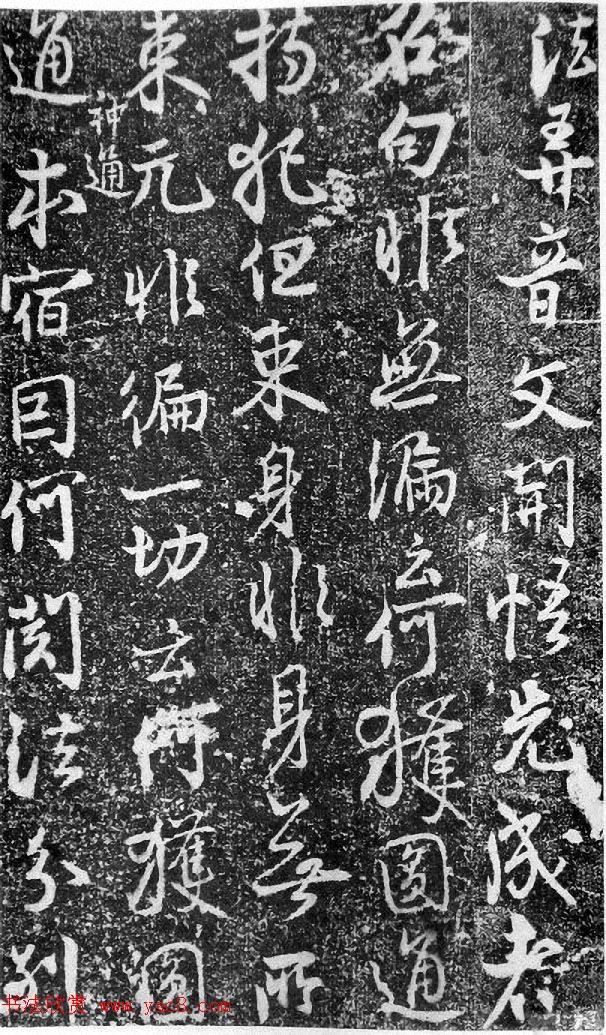 法弄音文開悟先成者
名句非無漏云何獲圓通
持犯但束身非身無所
束元非徧一切云何獲圓
通神通本宿因何関法分別
书法欣赏 www.yac8.com